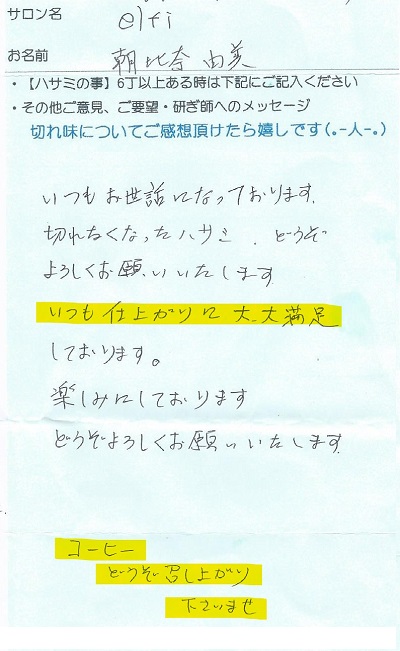 サロン名 elfi
お名前 朝比奈 由美
・【ハサミの事】6丁以上ある時は下記にご記入ください
・その他ご意見、ご要望・研ぎ師へのメッセージ
切れ味についてご感想頂けたら嬉しです(｡-人-｡)
いつもお世話になっております.
切れなくなったハサミ、どうぞ
よろしくお願いいたします
いつも仕上がりに大、大満足
しております。
楽しみにしております
どうぞよろしくお願いいたします
コーヒー
どうぞ召し上がり
下さいませ